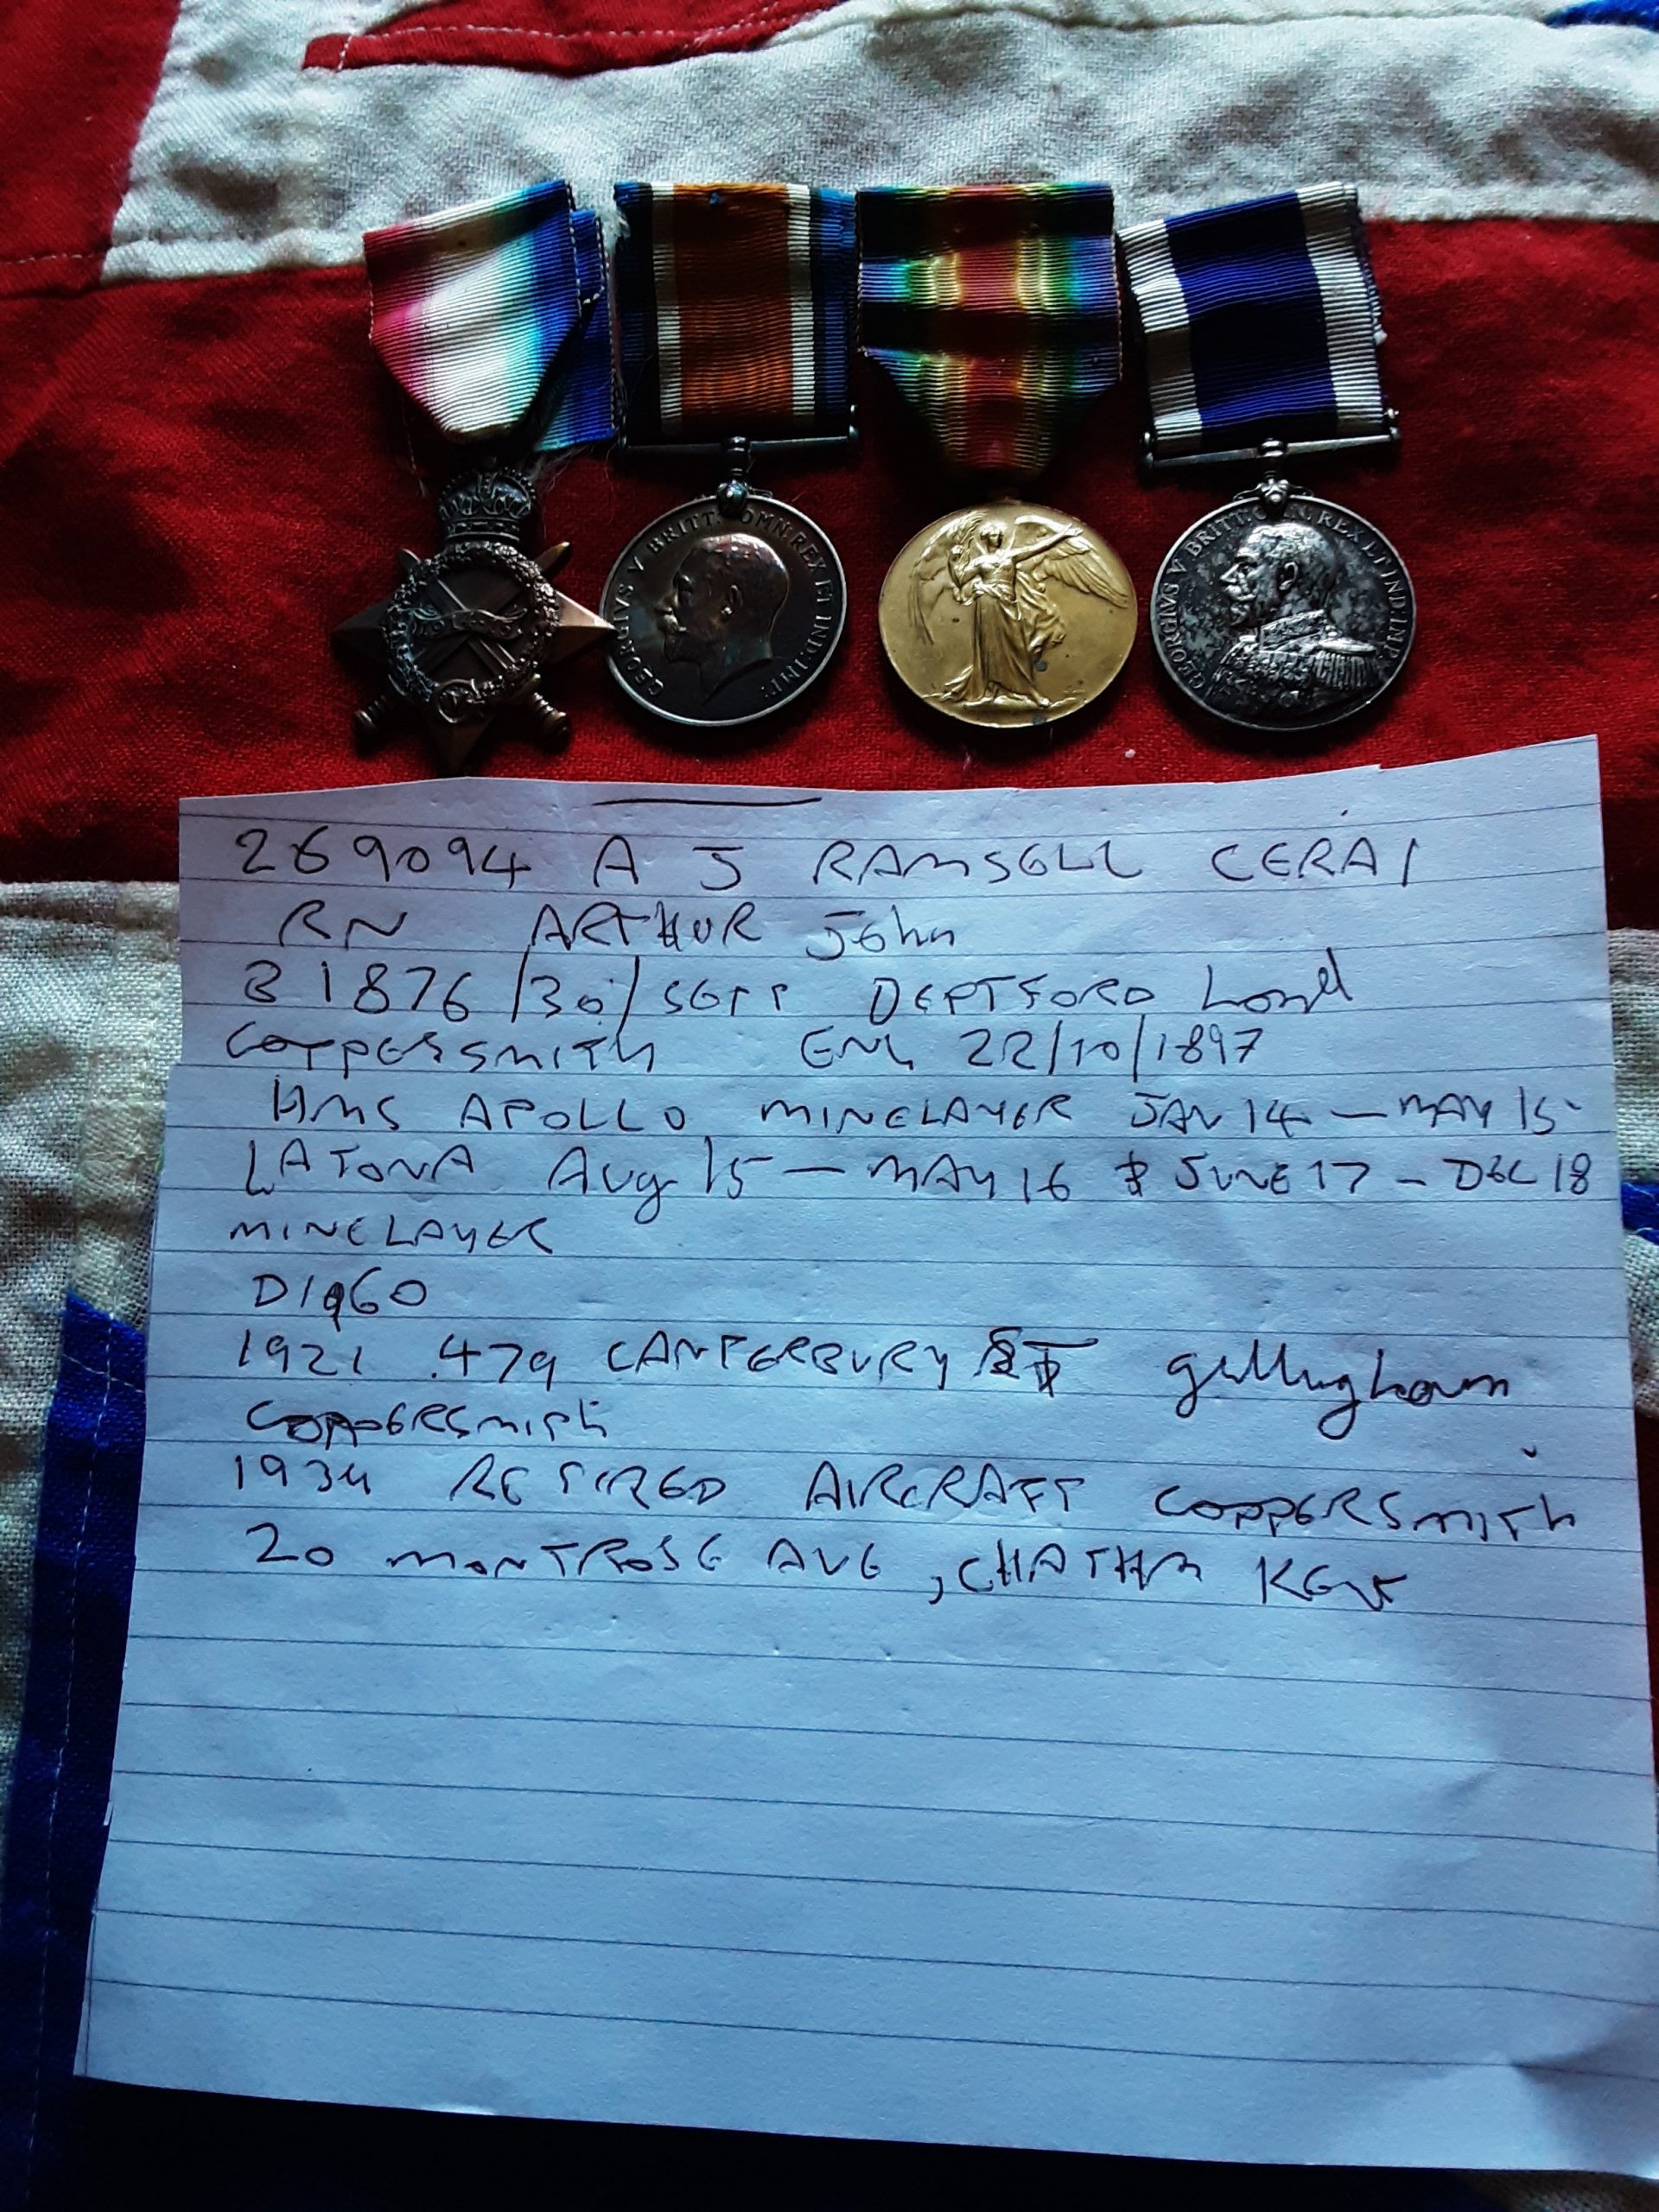 GEORGIVS V BRITT: OMN: REX ET IND: IMP:
GEORGIVS V BRITT: OMN: REX ET IND: IMP:
269094 A J RAMSELL CERA1
RN ARTHUR John
B 1876/30/SEPT DEPTFORD Lond
COPPERSMITH ENL 22/10/1897
HMS APOLLO MINELAYER JAN 14 — MAY 15
LATONA Aug 15 — MAY 16 & JUNE 17 — DEC 18
MINELAYER
D 1960
1921 479 CANTERBURY ST gillingham
COPPERSMITH
1934 RETIRED AIRCRAFT COPPERSMITH
20 MONTROSE AVE, CHATHM KENT